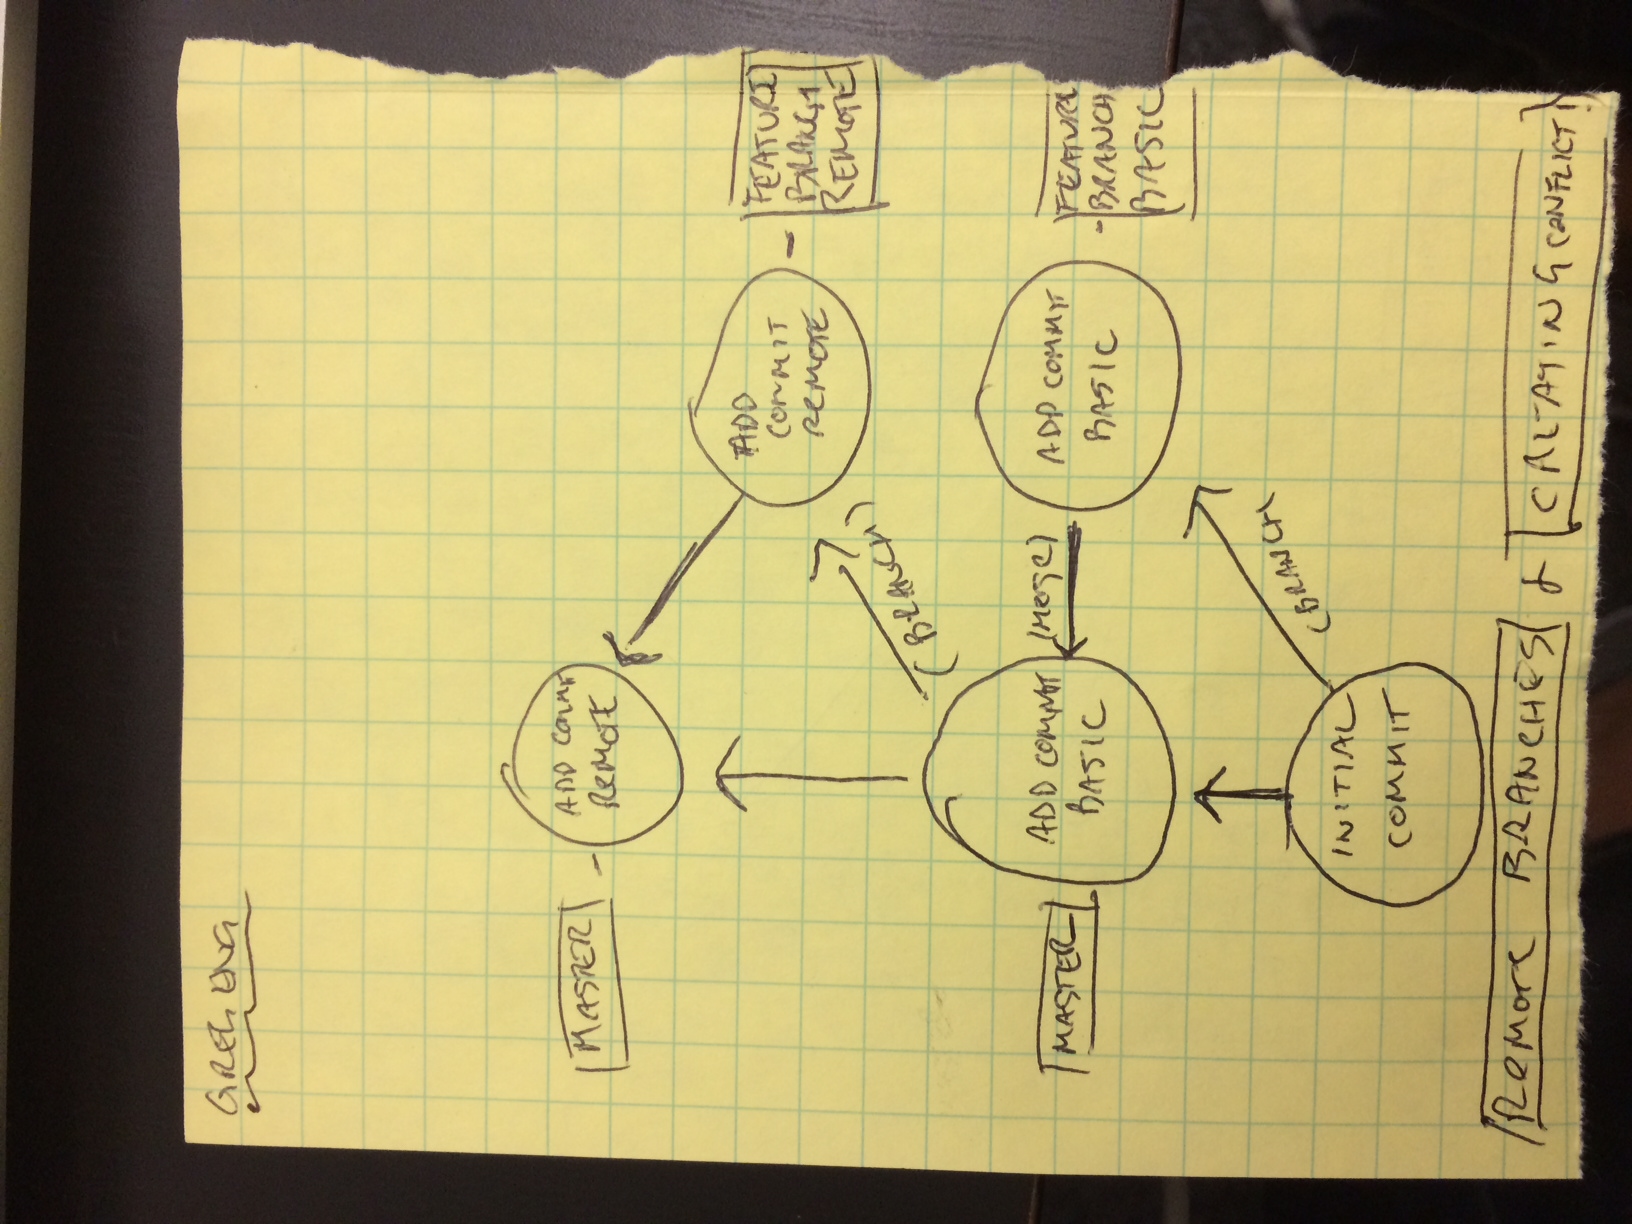 GREG ENG
MASTER
ADD COMMIT
REMOTE
ADD
COMMIT
REMOTE
FEATURE
BRANCH
REMOTE
(BRANCH)
MASTER
ADD COMMIT
BASIC
(MERGE)
ADD COMMIT
BASIC
FEATURE
BRANCH
BASIC
(BRANCH
INITIAL
COMMIT
REMOTE BRANCHES & CREATING CONFLICT!